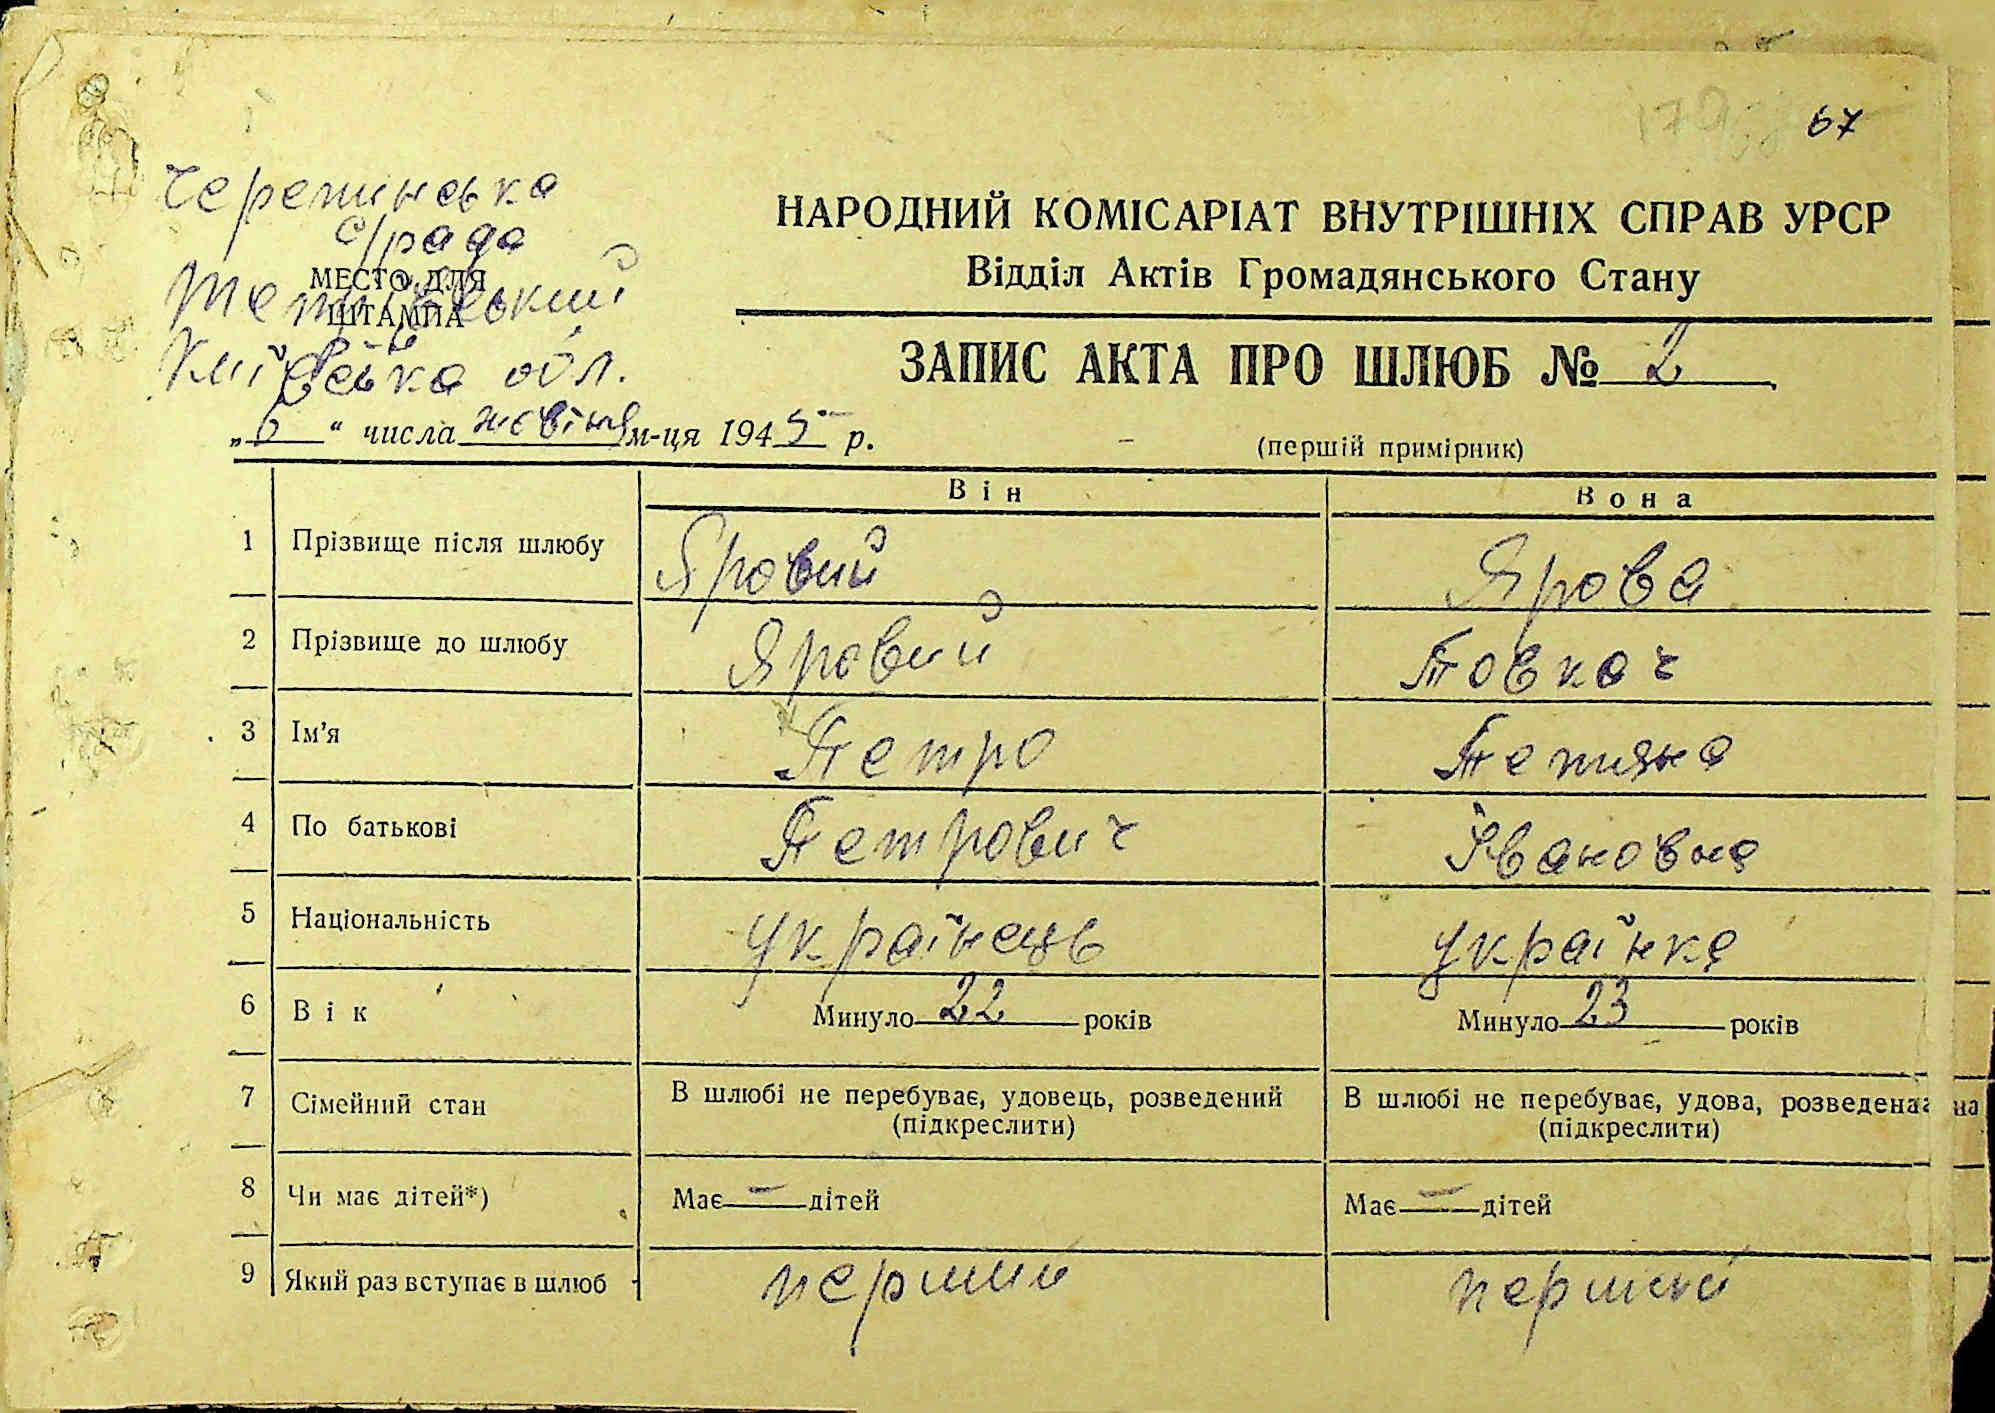 67
Черепинська
с/рада
МЕСТО ДЛЯ
ШТАМПА
Тетіївський
Київська обл.
НАРОДНИЙ КОМІСАРІАТ ВНУТРІШНІХ СПРАВ УРСР
Відділ Актів Громадянського Стану
ЗАПИС АКТА ПРО ШЛЮБ № 2
„6“ числа жовтня м-ця 1945 р.
(першій примірник)
Він Вона
1 Прізвище після шлюбу Яровий Ярова
2 Прізвище до шлюбу Яровий Товкач
3 Ім'я Петро Тетяна
4 По батькові Петрович Івановна
5 Національність українець українка
6 Вік Минуло 22 років Минуло 23 років
7 Сімейний стан В шлюбі не перебуває, удовець, розведений В шлюбі не перебуває, удова, розведена на
(підкреслити) (підкреслити)
8 Чи має дітей*) Має — дітей Має — дітей
9 Який раз вступає в шлюб перший перший